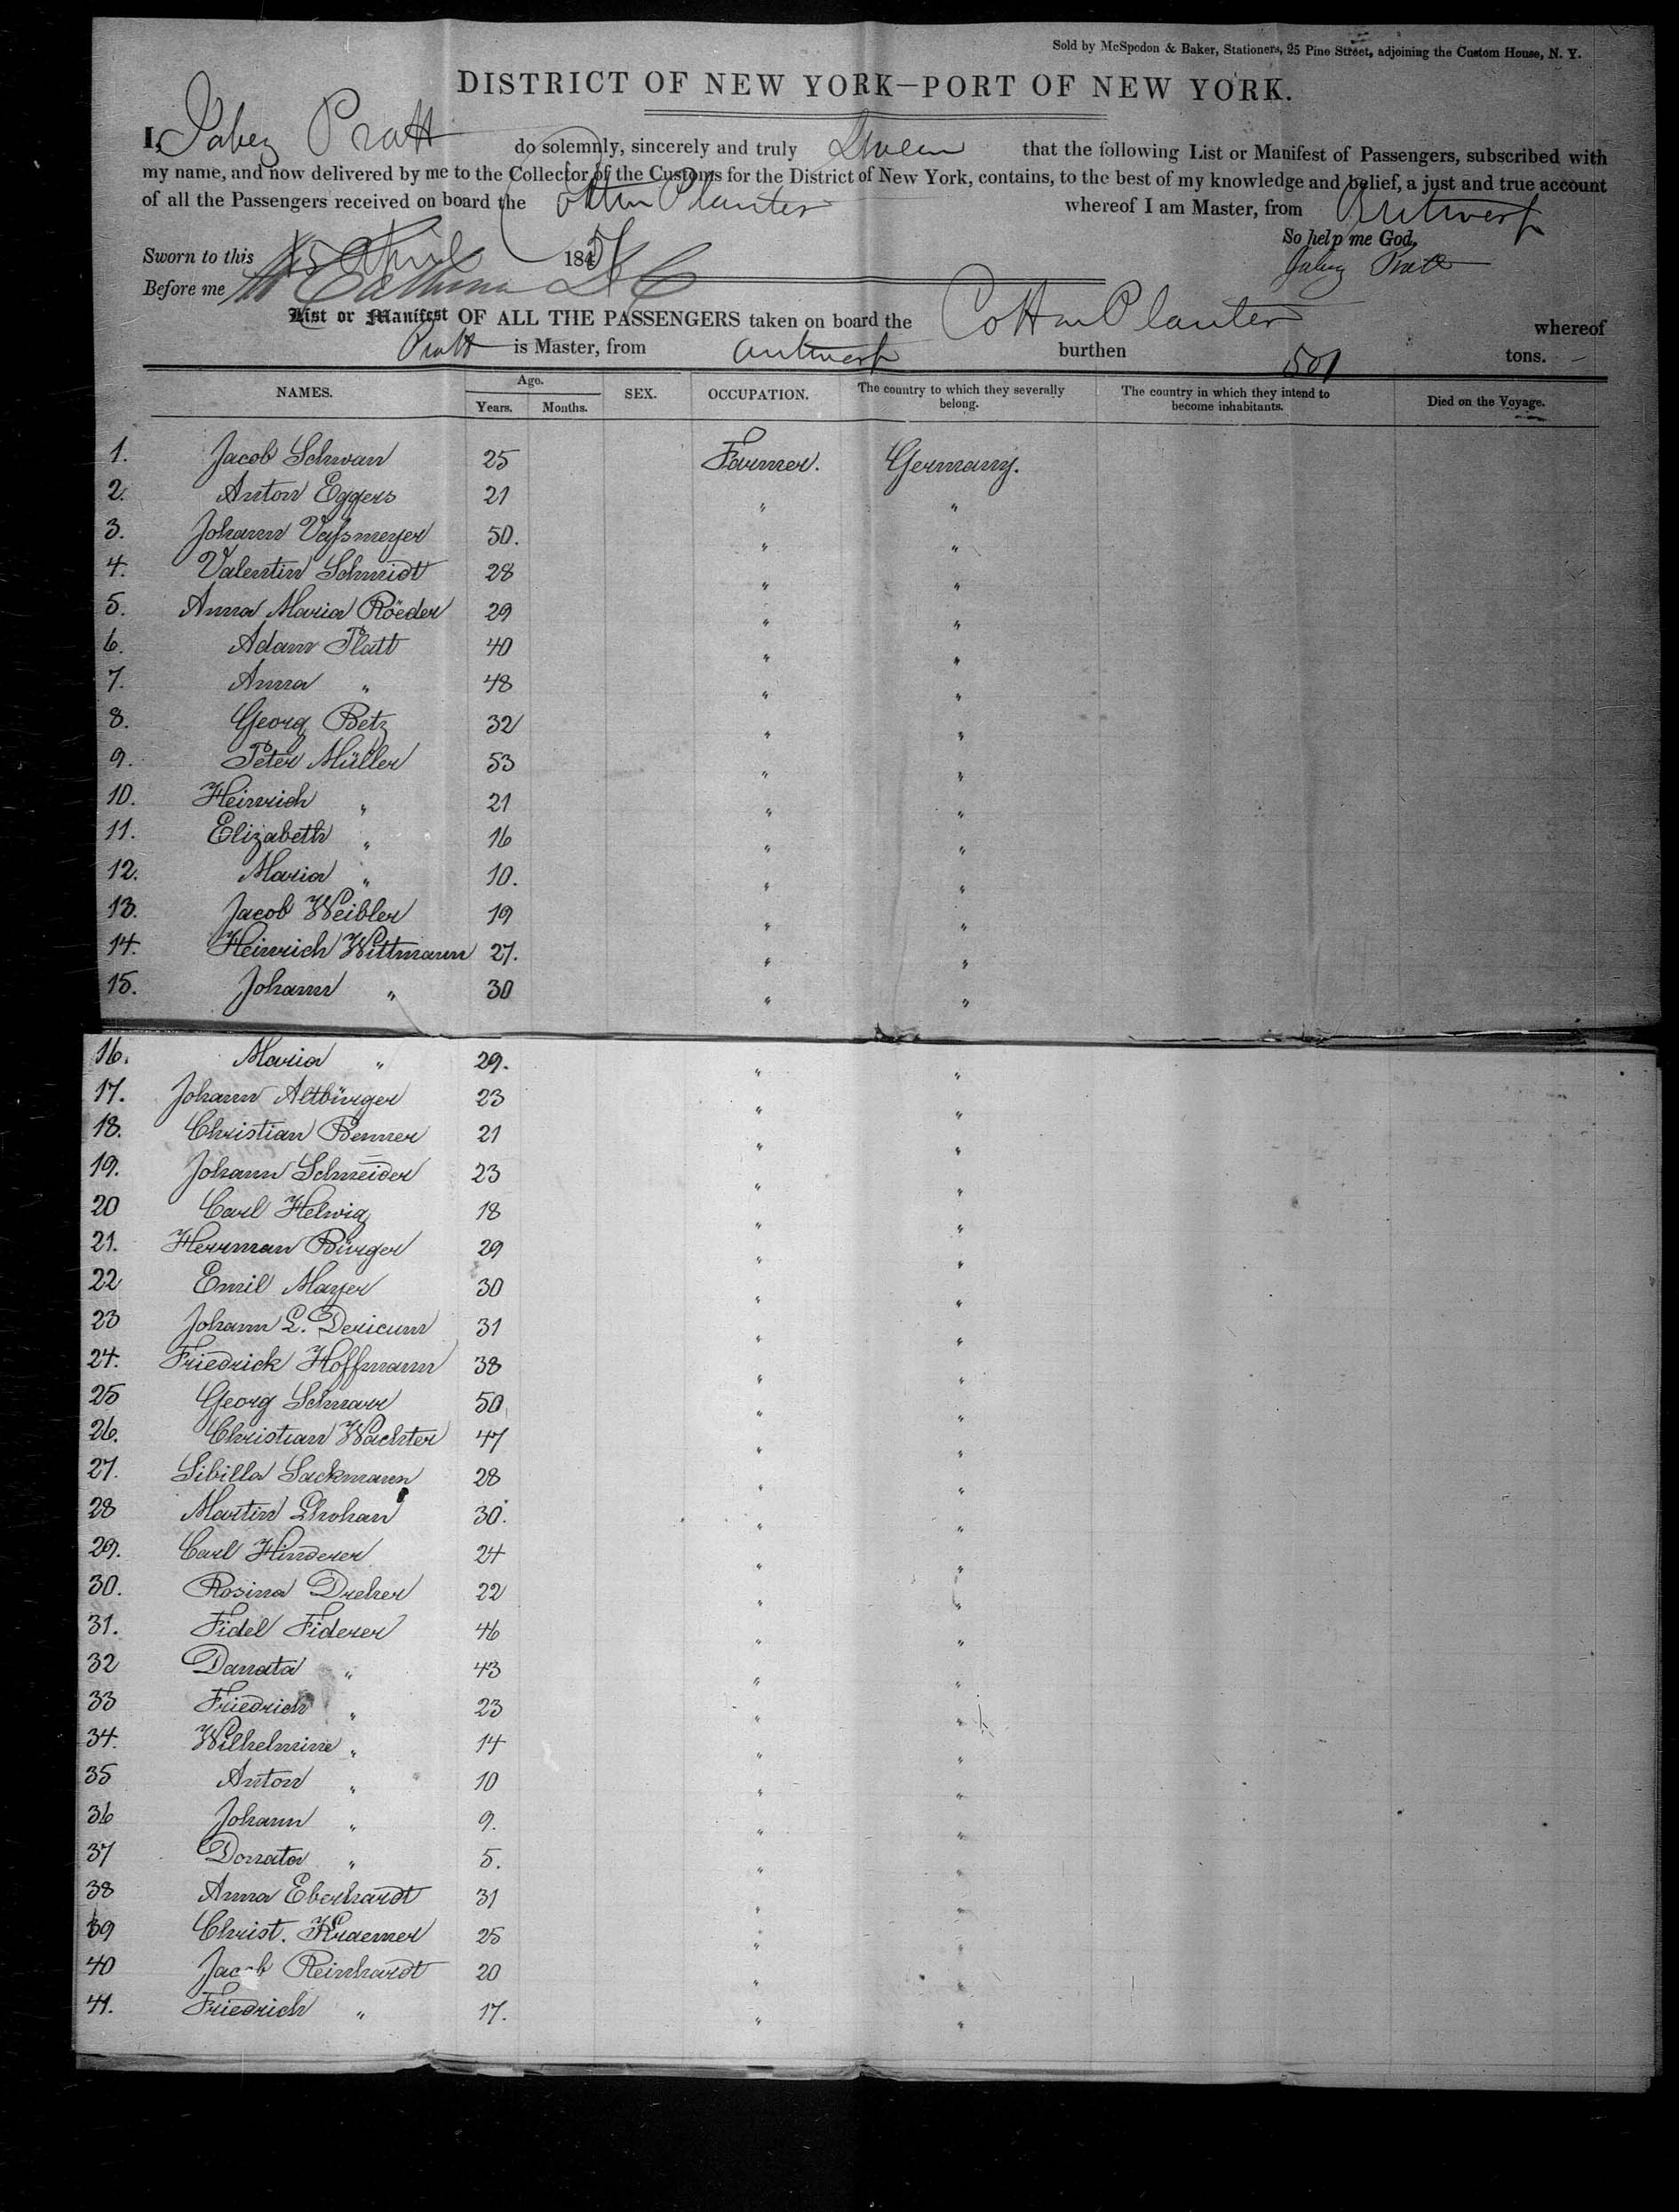 Sold by McSpedon & Baker, Stationers, 25 Pine Street, adjoining the Custom House, N. Y.
DISTRICT OF NEW YORK—PORT OF NEW YORK.
I, Jabez Pratt do solemnly, sincerely and truly Swear that the following List or Manifest of Passengers, subscribed with
my name, and now delivered by me to the Collector of the Customs for the District of New York, contains, to the best of my knowledge and belief, a just and true account
of all the Passengers received on board the Cotton Planter whereof I am Master, from Antwerp
So help me God,
Sworn to this 15 April 184
Jabez Pratt
Before me
List or Manifest OF ALL THE PASSENGERS taken on board the Cotton Planter whereof
Pratt is Master, from Antwerp burthen 501 tons.
NAMES. Age. SEX. OCCUPATION. The country to which they severally belong. The country in which they intend to become inhabitants. Died on the Voyage.
Years. Months.
1. Jacob Schwan 25 Farmer. Germany.
2. Anton Eggers 21 " "
3. Johann Vassmeyer 50. " "
4. Valentin Schmidt 28 " "
5. Anna Maria Röeder 29 " "
6. Adam Platt 40 " "
7. Anna " 48 " "
8. Georg Betz 32 " "
9. Peter Müller 53 " "
10. Heinrich " 21 " "
11. Elizabeth " 16 " "
12. Maria " 10. " "
13. Jacob Weibler 19 " "
14. Heinrich Wittmann 27. " "
15. Johann " 30 " "
16. Maria " 29. " "
17. Johann Altbürger 23 " "
18. Christian Benner 21 " "
19. Johann Schneider 23 " "
20 Carl Helwig 18 " "
21. Herrman Bürger 29 " "
22 Emil Mayer 30 " "
23 Johann L. Dericum 31 " "
24. Friedrick Hoffmann 38 " "
25 Georg Schnarr 50 " "
26. Christian Wachter 47 " "
27. Sibilla Sackmann 28 " "
28 Martin 30. " "
29. Carl Hinderer 24 " "
30. Rosina Dreher 22 " "
31. Fidel Fiderer 46 " "
32 Danata " 43 " "
33 Friedrich " 23 " "
34. Wilhelmine " 14 " "
35 Anton " 10 " "
36 Johann " 9. " "
37 Donata " 5. " "
38 Anna Eberhardt 31 " "
39 Christ. Kraemer 25 " "
40 Jacob Reinhardt 20 " "
41. Friedrich " 17. " "